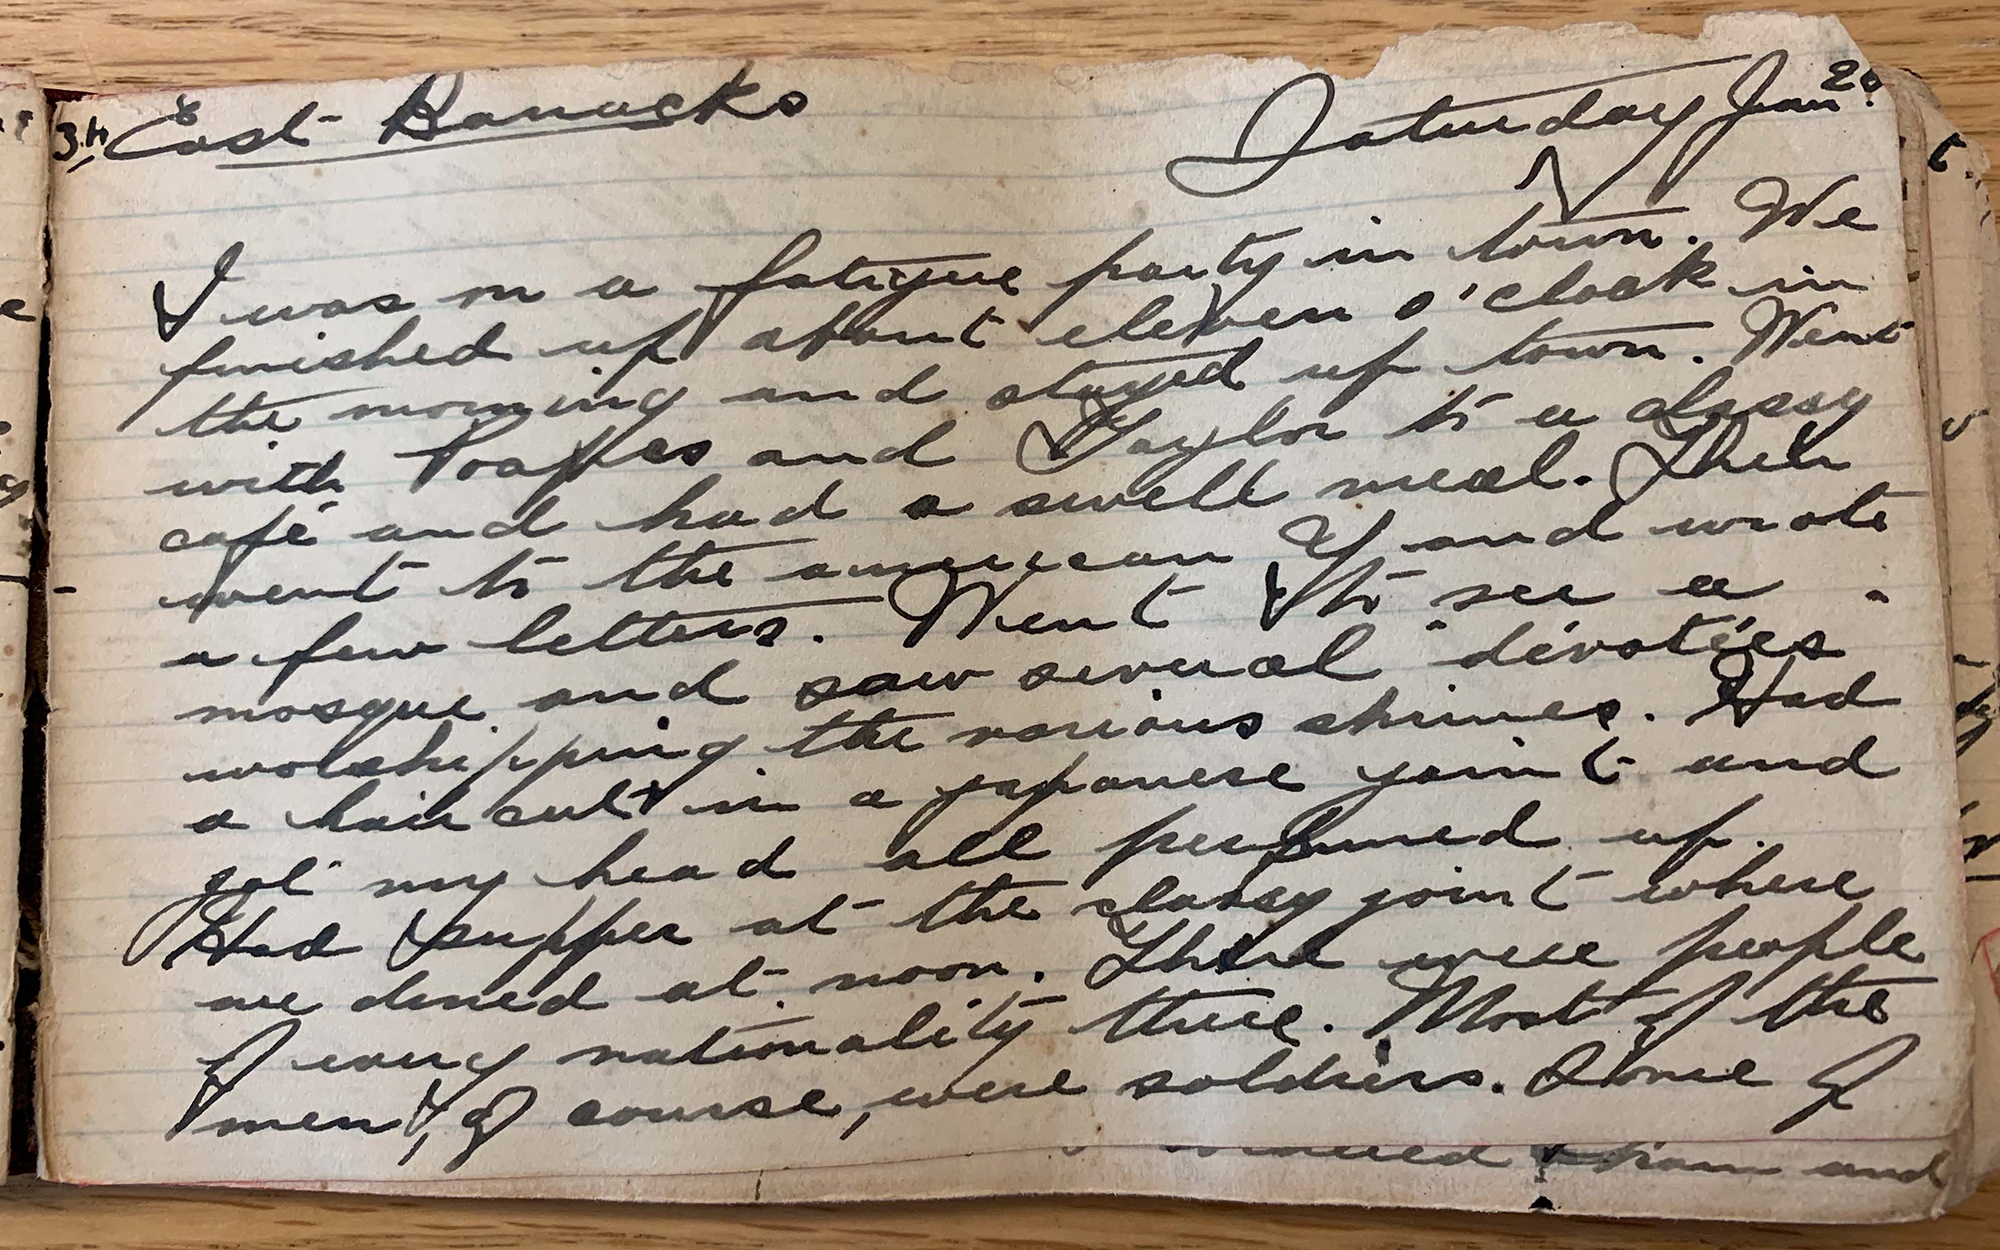 East Barracks
Saturday Jan
I was on a fatigue party in town. We
finished up about eleven o'clock in
the morning and stayed up town. Went
with and Taylor to a classy
café and had a swell meal. Then
went to the american Y and wrote
a few letters. Went to see a
mosque and saw several "dévotées"
worshipping the various shrines. Had
a hair cut in a japanese joint and
got my head all perfumed up.
Had supper at the classy joint where
we dined at noon. There were people
of every nationality there. Most of the
men, of course, were soldiers. Some of
and